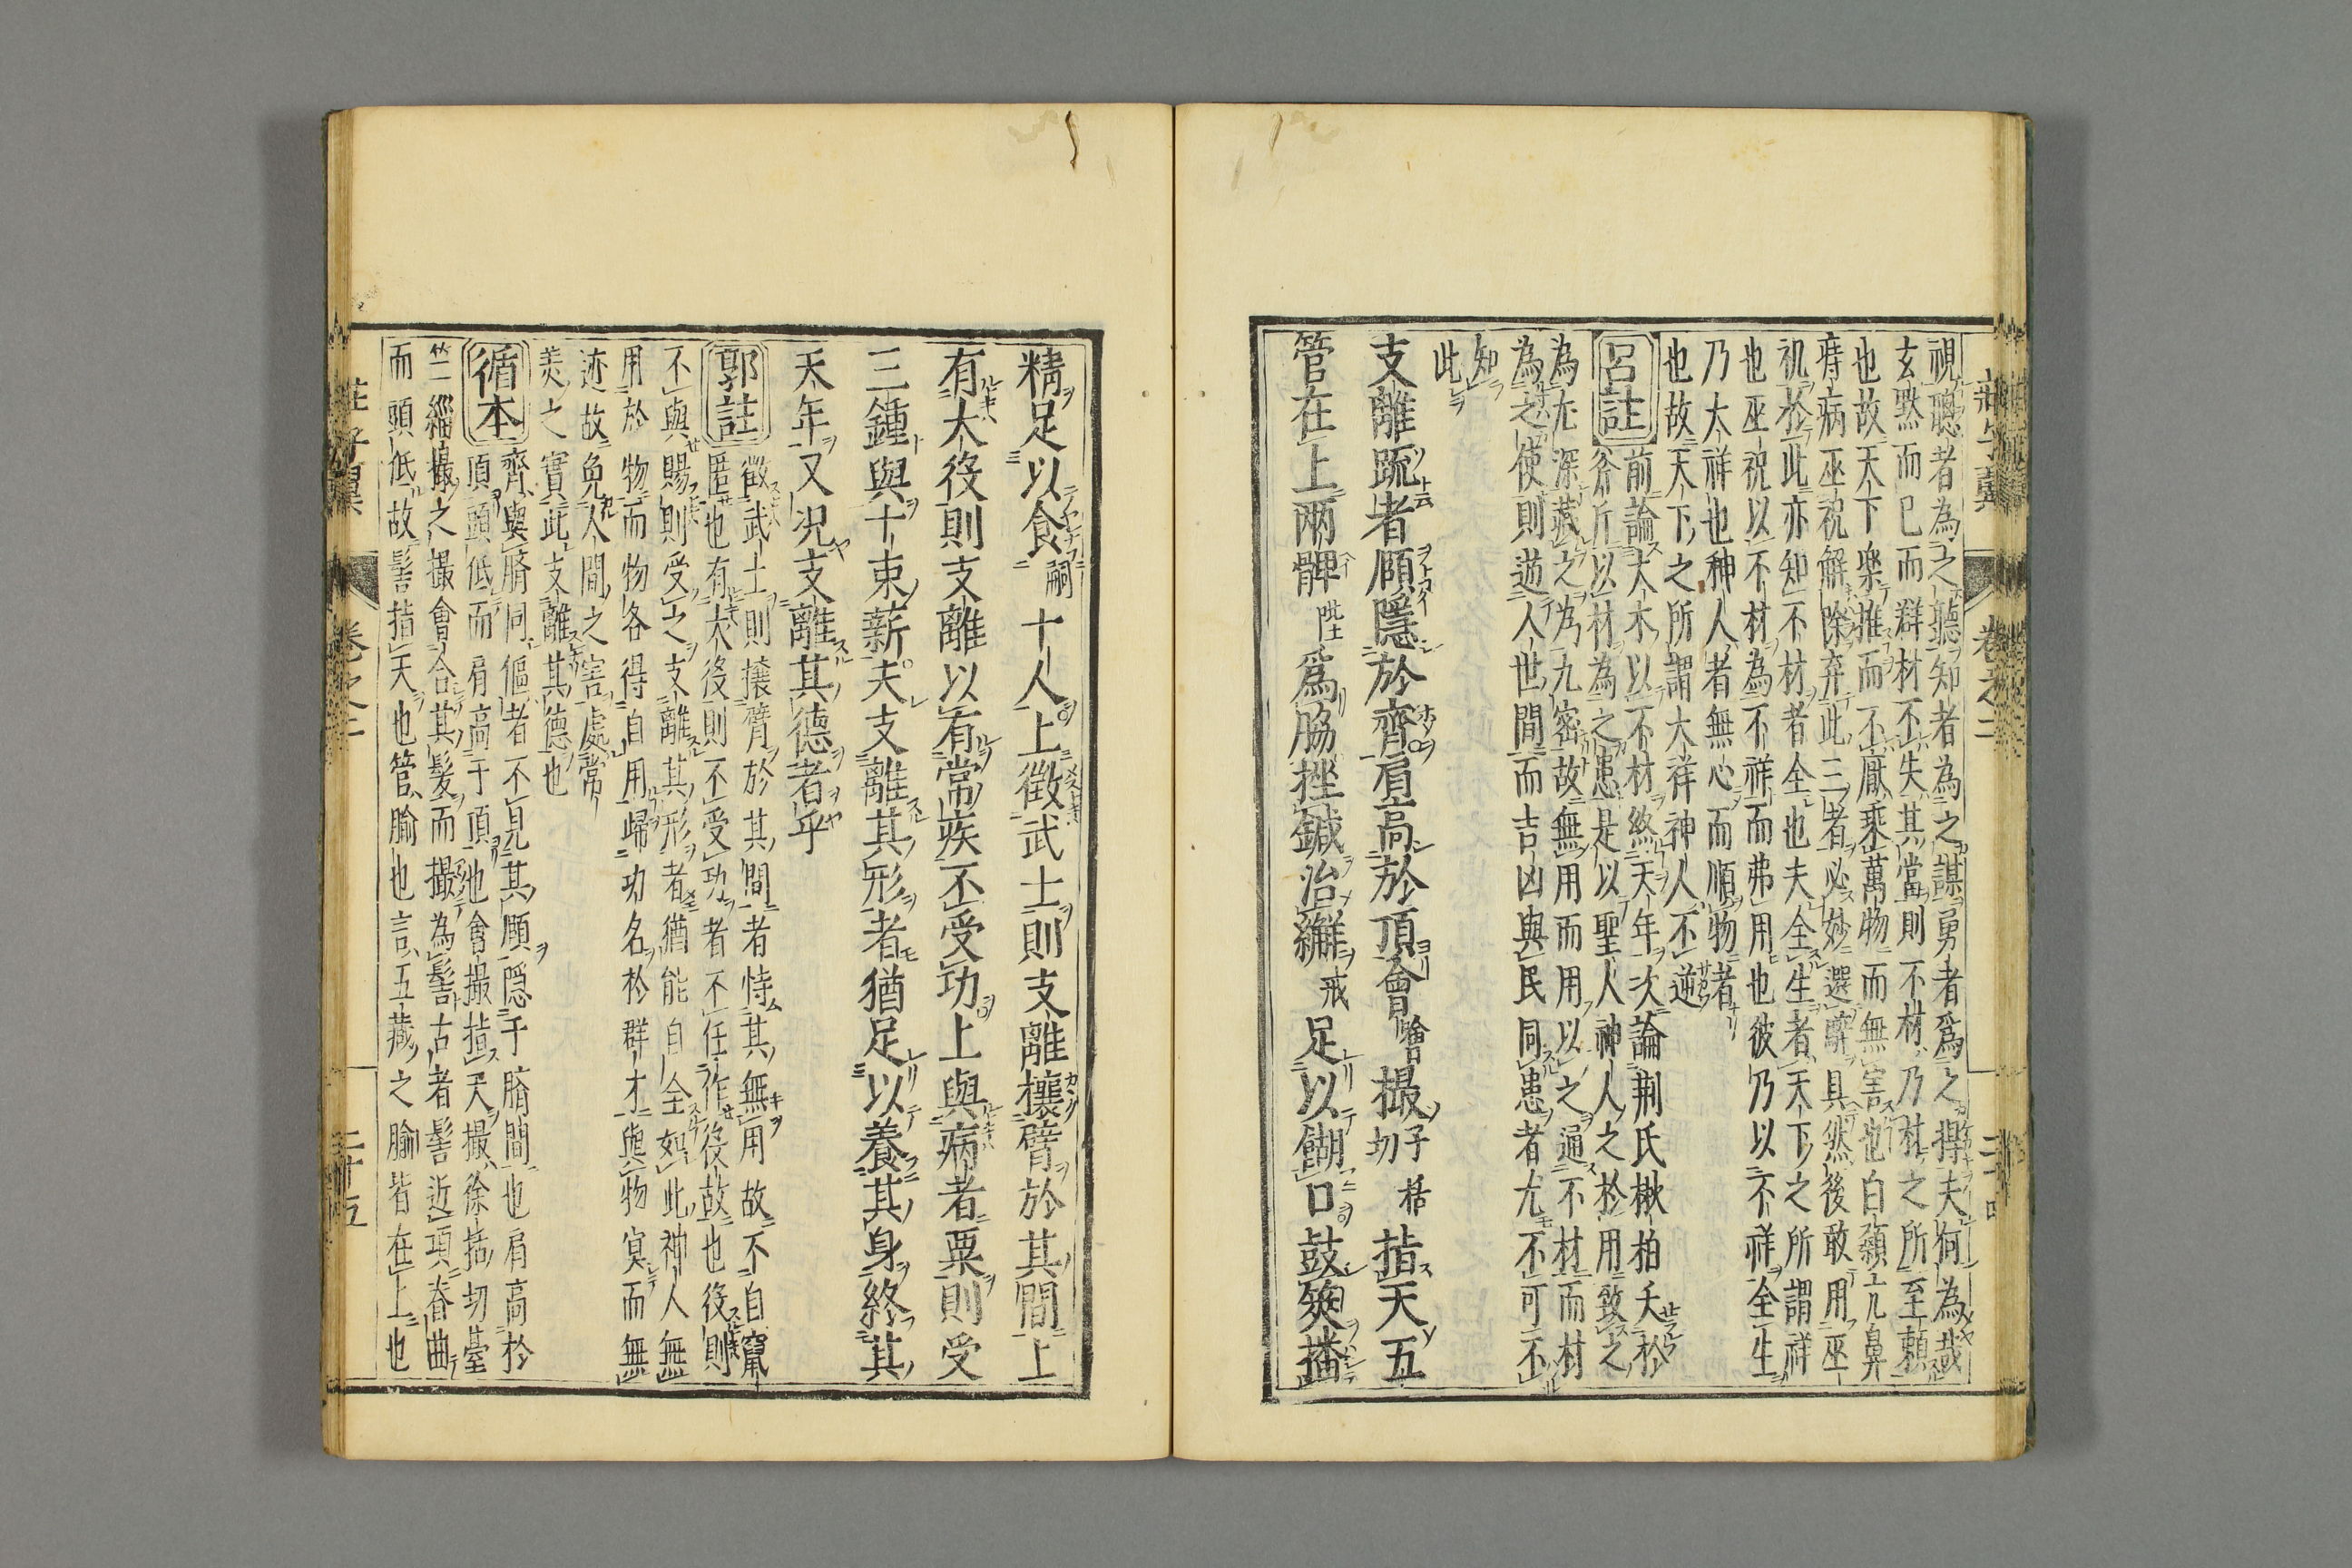 視聽者為之聽知者為之謀勇者爲之捍夫何為哉
玄黙而已而群材不失其當則不材乃材之所至頼
也故天下樂推而不厭乘萬物而無害也白顙亢鼻
痔病巫祝解除弃此三者必妙選騂具然後敢用巫
祝於此亦知不材者全也夫全生者天下之所謂祥
也巫祝以不材為不祥而弗用也彼乃以不祥全生
乃大祥也神人者無心而順物者
也故天下之所謂大祥神人不逆
呂註 前論大木以不材終天年次論荆氏楸柏夭於
斧斤以材為之患是以聖人神人之於用致之
為尤深藏之為尤密故無用而用以之通不材而材
為之使則遊人世間而吉凶與民同患者尤不可不
知
此
支離疏者頤隱於齊肩高於頂會噲撮子括切指天五
管在上兩髀陛爲脇挫鍼治繲戒足以餬口鼓筴播
莊子翼 卷之二 二十四
精足以食嗣十人上徵武士則支離攘臂於其間上
有大役則支離以有常疾不受功上與病者粟則受
三鍾與十束薪夫支離其形者猶足以養其身終其
天年又况支離其德者乎
郭註 徵武士則攘臂於其間者恃其無用故不自竄
匿也有大役則不受功者不任作役故也役則
不與賜則受之支離其形者猶能自全如此神人無
用於物而物各得自用歸功名於群才與物冥而無
迹故免人間之害處常
美之實此支離其德也
循本 齊與臍同傴者不見其頤隠于臍間也肩高於
頂頭低而肩高于頂也會撮指天撮徐括切臺
竺緇撮之撮會合其髮而撮為髻古者髻近項脊曲
而頭低故髻指天也管腧也言五藏之腧皆在上也
莊子翼 卷之二 二十五